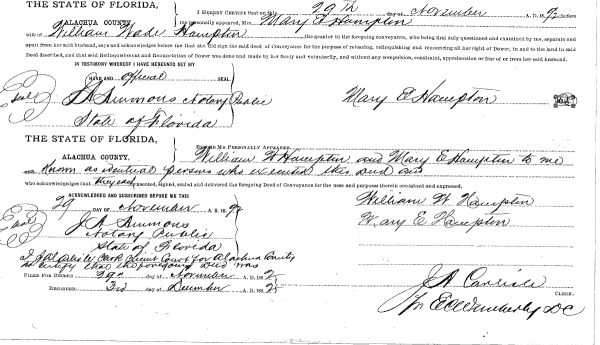 THE STATE OF FLORIDA,
ALACHUA COUNTY.
I HEREBY CERTIFY that on this 29th day of November A. D. 1892 before
me personally appeared, Mrs. Mary E Hampton
wife of William Wade Hampton the grantor in the foregoing conveyance, who being first duly questioned and examined by me, separate and
apart from her said husband, says and acknowledges before me that she did sign the said deed of Conveyance for the purpose of releasing, relinquishing and renouncing all her right of Dower, in and to the land in said
Deed described, and that said Relinquishment and Renunciation of Dower was done and made by her freely and voluntarily, and without any compulsion, constraint, apprehension or fear of or from her said husband.
IN TESTIMONY WHEREOF I HAVE HEREUNTO SET MY
HAND AND official SEAL
Seal
Notary Public
State of Florida
Mary E Hampton
THE STATE OF FLORIDA,
ALACHUA COUNTY.
BEFORE ME PERSONALLY APPEARED
William W Hampton and Mary E Hampton to me
Known as identical persons who executed this deed and
who acknowledges that they signed, sealed and delivered the foregoing Deed of Conveyance for the uses and purposes therein contained and expressed.
ACKNOWLEDGED AND SUBSCRIBED BEFORE ME THIS
29 DAY OF November A. D. 1892
Seal
Notary Public
State of Florida
William W. Hampton
Mary E Hampton
I Clerk Circuit Court for Alachua County
certify that the foregoing Deed was
FILED FOR RECORD day of November A. D. 1892
RECORDED 3rd day of December A. D. 1892
J A Carlisle
CLERK.
DC